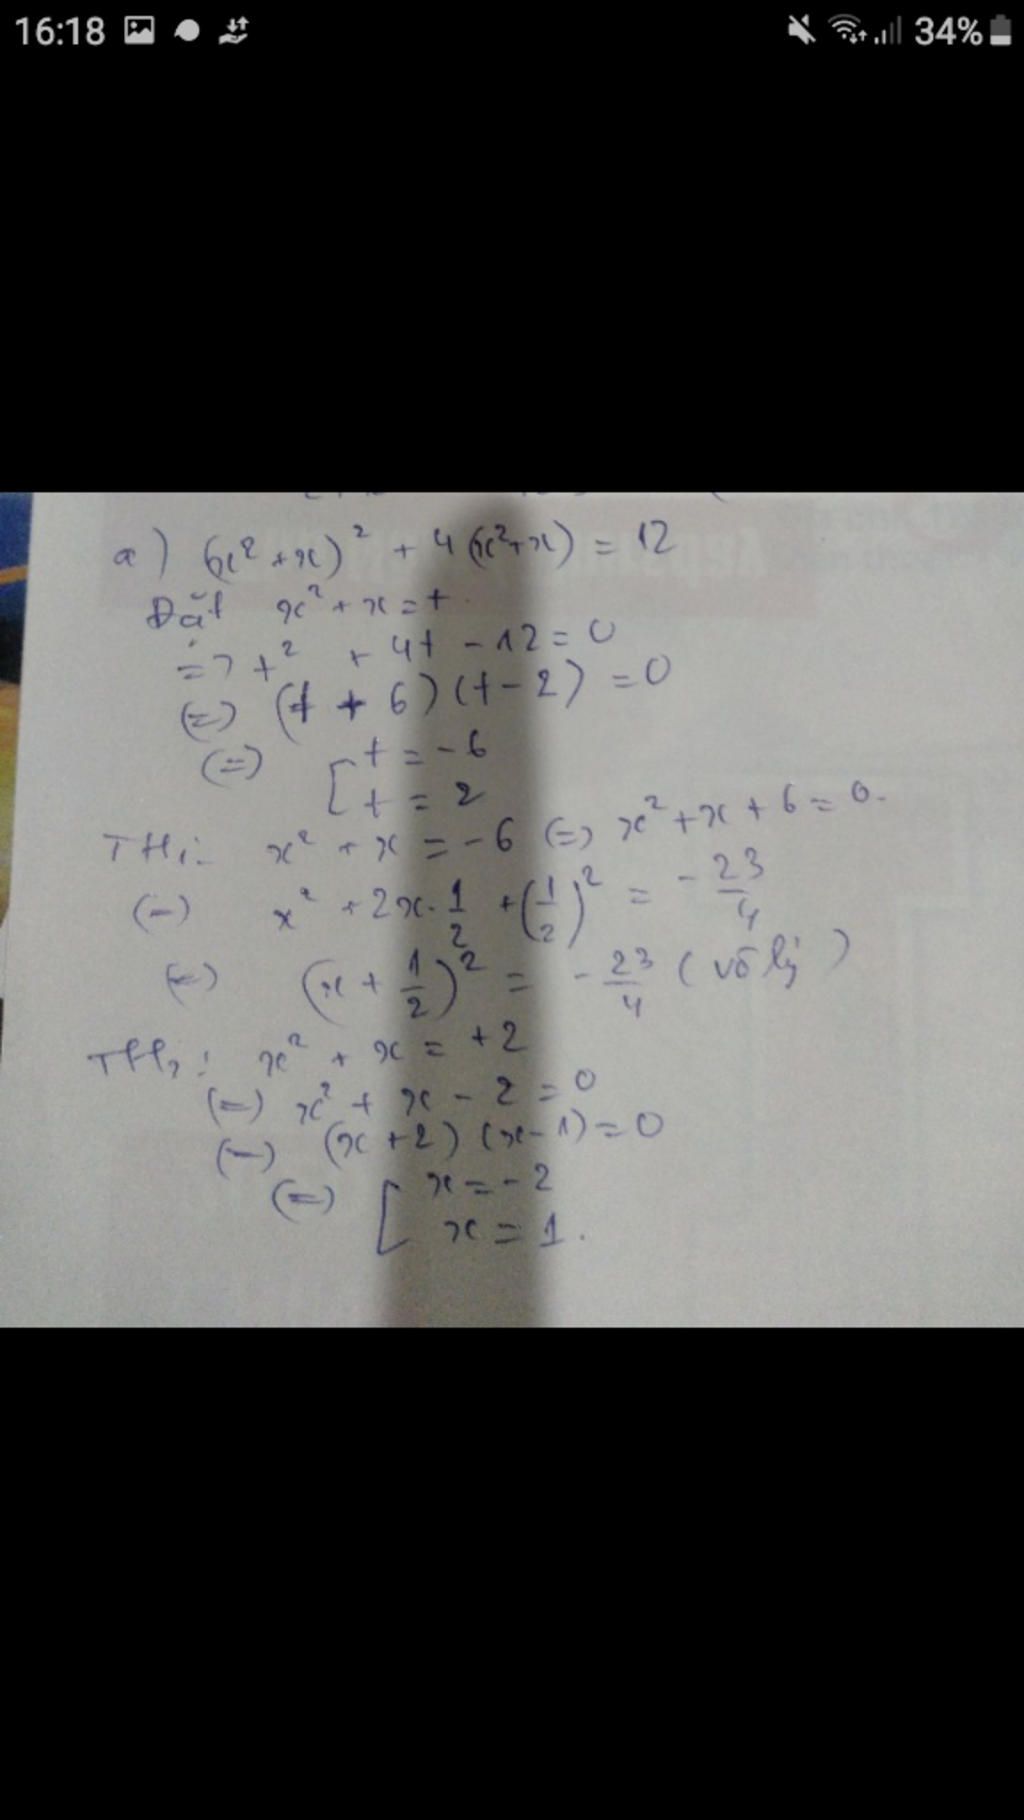 16:18 34%
a) (x² + x)² + 4(x² + x) = 12
Đặt x² + x = t.
=> t² + 4t - 12 = 0
(=) (t + 6)(t - 2) = 0
(=) [ t = -6
t = 2
TH1: x² + x = -6 (=) x² + x + 6 = 0.
(=) x² + 2x.1/2 + (1/2)² = -23/4
(=) (x + 1/2)² = -23/4 (vô lý)
TH2: x² + x = +2
(=) x² + x - 2 = 0
(=) (x + 2)(x - 1) = 0
(=) [ x = -2
x = 1.